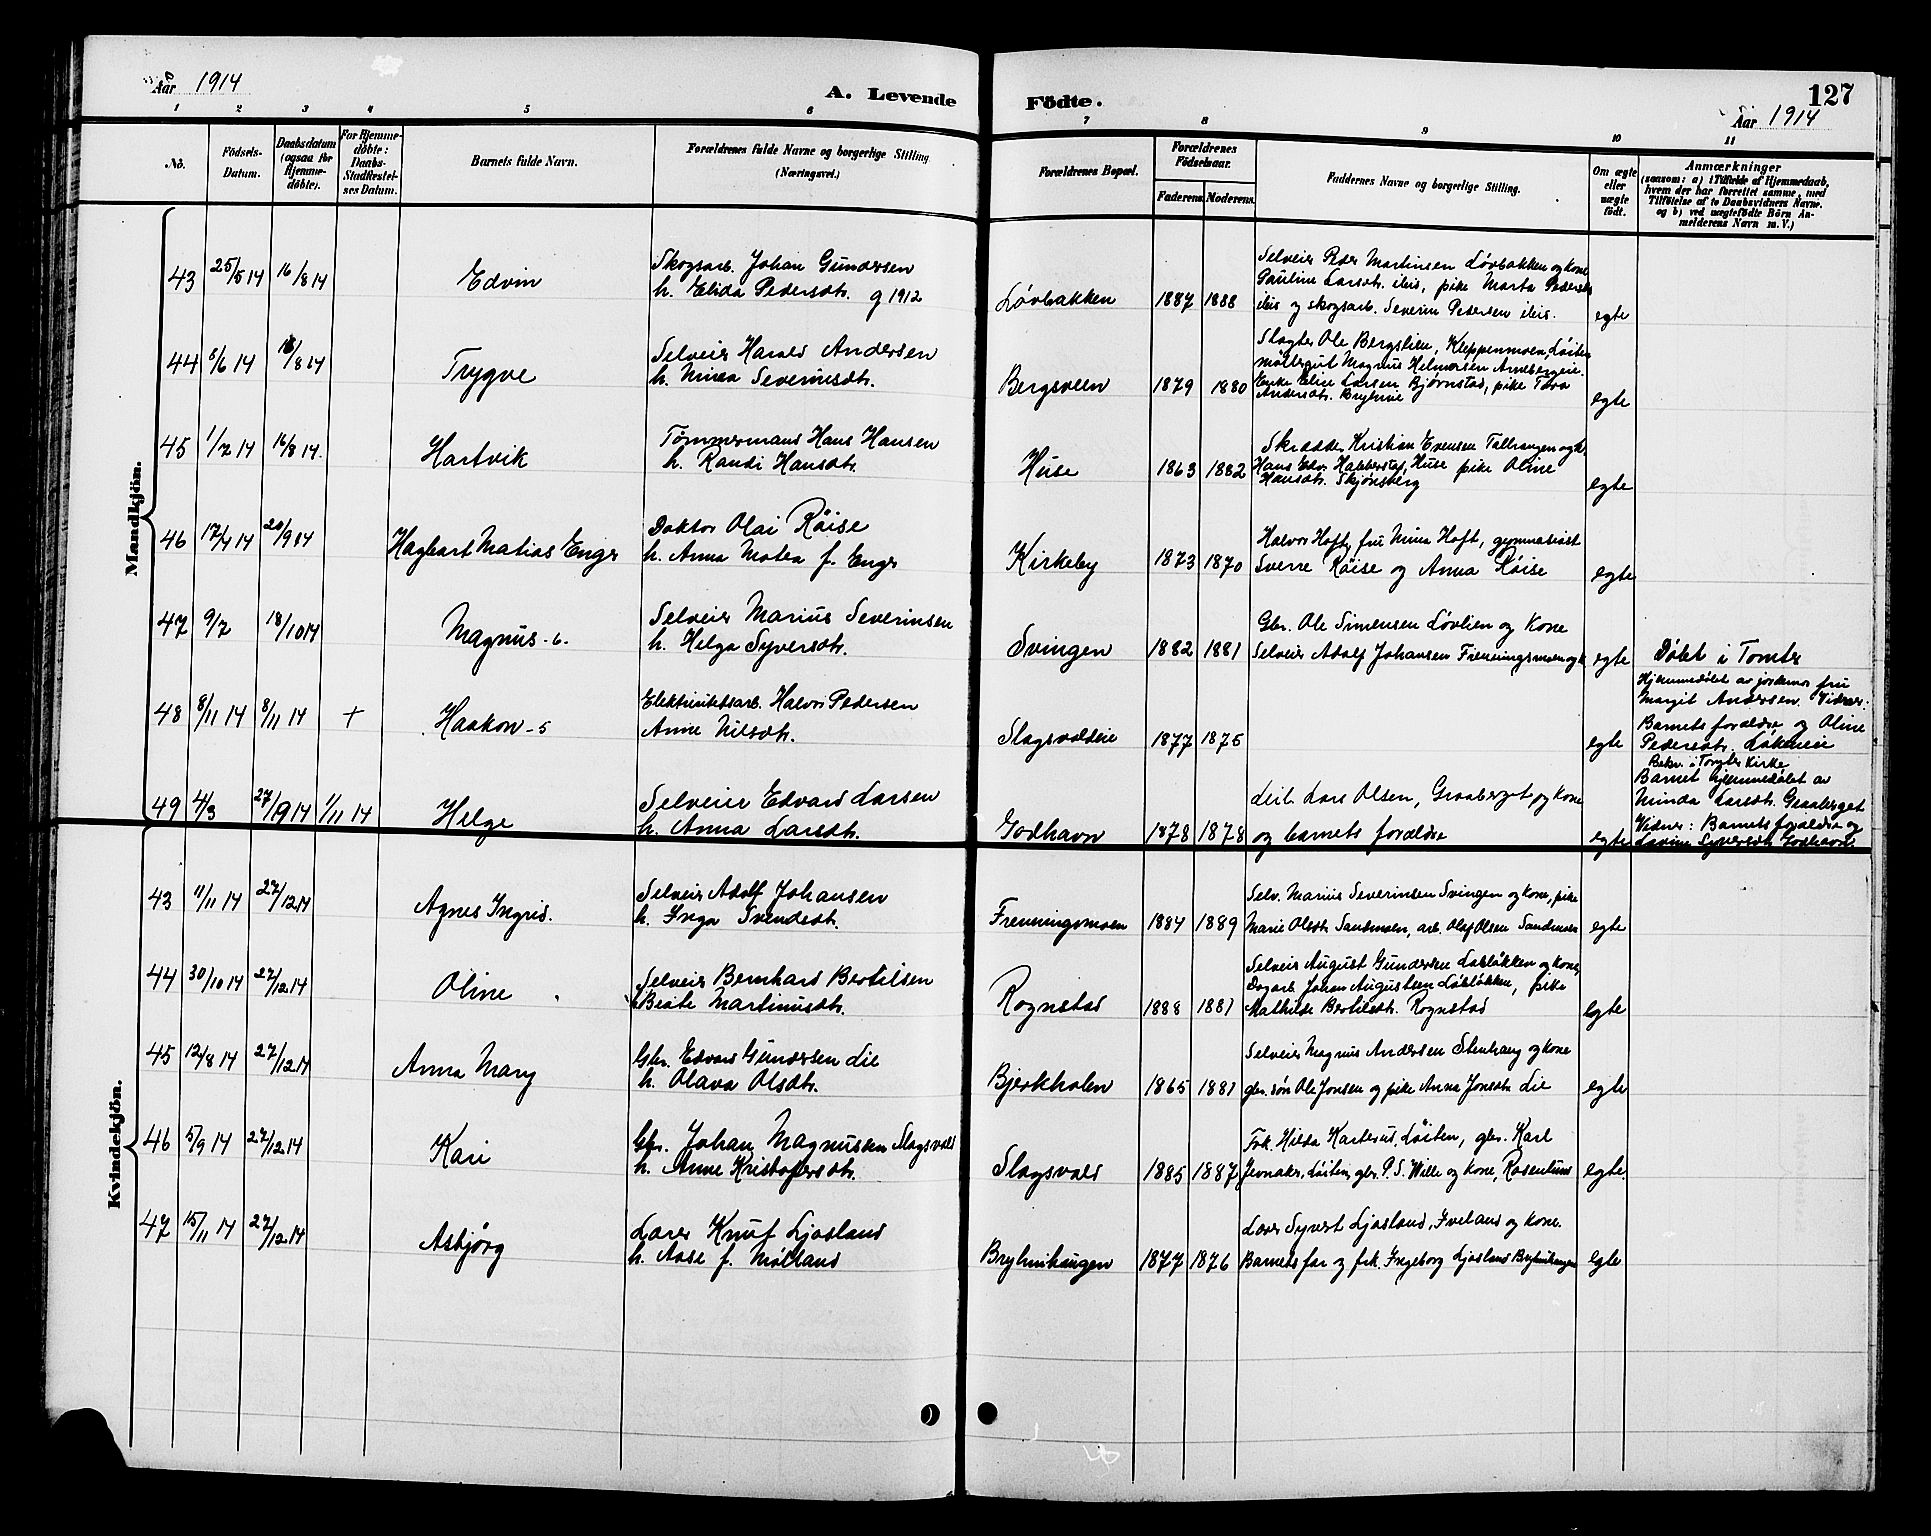 Aar 1914
A. Levende Födte.
127
Aar 1914
1 2 3 4 5 6 7 8 9 10 11
No.
Födsels-
Datum.
Daabsdatum
(ogsaa for
Hjemme-
döbte).
For Hjemme-
döbte:
Daabs-
Stadfæstel-
ses Datum.
Barnets fulde Navn.
Forældrenes fulde Navne og borgerlige Stilling
(Næringsvei.)
Forældrenes Bopæl.
Forældrenes
Födselsaar.
Faderens. Moderens.
Faddernes Navne og borgerlige Stilling.
Om ægte
eller
uægte
födt.
Anmærkninger
(saasom: a) i Tilfælde af Hjemmedaab,
hvem der har forrettet samme, med
Tilföielse af to Daabsvidners Navne.
og b) ved uægtefödte Börn An-
melderens Navn m. V.)
Mandkjön.
43 25/5 14 16/8 14 Edvin
Skogsarb. Johan Gundersen
h. Elida Pedersdtr. g 1912
Løvbakken 1887 1888
Selveier Peder Martinsen Løvbakken og kone
Pauline Larsdtr. ibis, pike Marta Pedersdtr
ibis og skogsarb. Severin Pedersen ibis.
egte
44 8/6 14 16/8 14 Trygve
Selveier Harald Andersen
h. Mina Severinsdtr.
Bergsveen 1879 1880
Slagter Ole Bergslien, Kleppenmoen, Løiten
møllergut Magnus Helmersen Arnebergeie.
Enke Elise Larsen Bjørnstad, pike Tora
Andersdtr. Bryhnie
egte
45 1/7 14 16/8 14. Hartvik
Tømmermand Hans Hansen
h. Randi Hansdtr.
Huse 1863 1882
Skrædder Kristian Evensen Tallrangen og k.
Hans Edv. Halberstad, Huse pike Oline
Hansdtr. Skjønsberg
egte
46 17/4 14 20/9 14 Hagbart Matias Enger
Doktor Olai Röise
h. Anna Matea f. Enger
Kirkeby 1873 1870
Halvor Hoft, fru Mina Hoft, gymnasiast
Sverre Röise og Anna Röise
egte
47 9/7 18/10 14 Magnus -6-
Selveier Marius Severinsen
h. Helga Syversdtr.
Svingen 1882 1881
Gbr. Ole Simensen Løvlien og kone
Selveier Adolf Johansen Frenningsmoen og k.
egte
Døbt i Tomter
48 8/11 14 8/11 14 + Haakon -5
Elektricitetsarb. Halvor Pedersen
Anne Nilsdtr.
Slagsvoldeie 1877 1875
egte
Hjemmedøbt av jordmor fru
Margit Andersen. Vidner:
Barnets forældre og Oline
Pedersdtr. Løkeneie
Bekr. i Tomter Kirke
49 4/3 27/9 14 1/11 14 Helge
Selveier Edvard Larsen
h. Anna Larsdtr.
Godhavn 1878 1878
Leil. Lars Olsen, Graaberget og kone
og barnets forældre
egte
Barnet hjemmedøbt av
Minda Larsdtr. Graaberget
Vidner: Barnets forældre og
Lovise Syversdtr. Godhavn
Kvindekjön.
43 11/11 14 27/12 14 Agnes Ingrid.
Selveier Adolf Johansen
h. Inga Svendsdtr.
Frenningsmoen 1884 1889
Selv. Marius Severinsen Svingen og kone, pike
Marie Olsdtr Sandmoen, arb. Olaf Olsen Sandmoen
egte
44 30/10 14 27/12 14 Oline
Selveier Bernhard Bertilsen
h. Beate Martinusdtr.
Rognstad 1888 1881
Selveier August Gundersen Løbløkken og kone,
Dagarb. Johan Augustsen Løbløkken, pike
Mathilde Bertilsdtr. Rognstad
egte
45 12/8 14 27/12 14 Anna Mary
Gbr. Edvard Gundersen Lie
h. Olava Olsdtr.
Bjerkholen 1865 1881
Selveier Magnus Andersen Stenhaug og kone
gbr. søn Ole Jonsen og pike Anna Jonsdtr Lie
egte
46 5/9 14 27/12 14 Kari
Gbr. Johan Magnussen Slagsvold
h. Anne Kristofersdtr.
Slagsvold 1885 1887
Frk. Hilda Karterud, Løiten, gbr. Karl
Jevnaker, Løiten, gbr. P. S. Wille og kone, Rosenlund
egte.
47 15/11 14 27/12 14 Asbjørg
Lærer Knut Ljosland
h. Aase f. Mølland
Brylnihaugen 1877 1876
Lærer Syvert Ljosland, Iveland og kone.
Barnets far og frk. Ingeborg Ljosland Brylnihaugen
egte